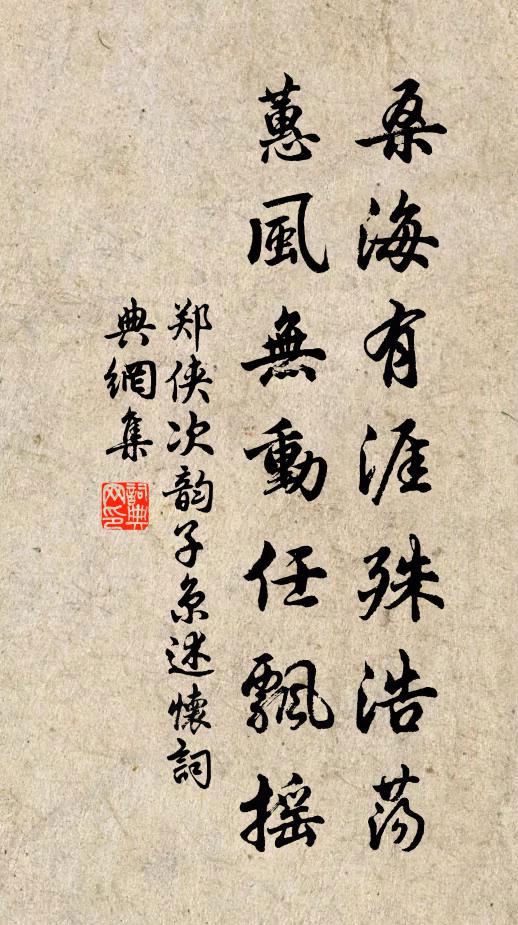 桑海有涯殊浩荡
蕙風無動任飄摇
郑侠次韵子京述懷詞
典網集
詞典
网印